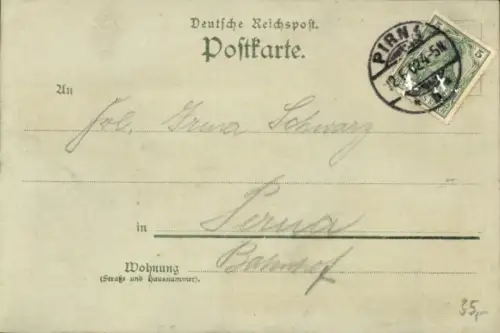 Deutsche Reichspost.
Postkarte.
PIRNA
12.5.02 4-5N
5
5
An
Frl. Irma Schwarz
in Perna
Bahnhof
Wohnung
(Straße und Hausnummer).
35,-